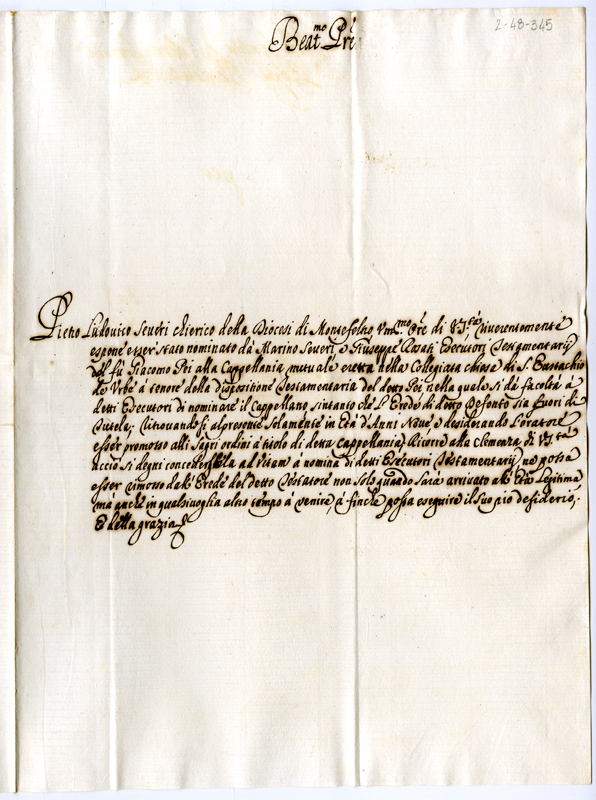 2-48-345
Beat.mo Pre
Pietro Ludovico Severi chierico della Diocesi di Montefeltro Um.mo Ore di V. S.tà riverentemente
espone esser stato nominato dà Marino Severi, e Giuseppe Rosati Esecutori Testamentarij
del fù Giacomo Pei alla Cappellania mutuale eretta nella Collegiata chiesa di S. Eustachio
de Urbe à tenore della dispositione Testamentaria del detto Pei nella quale si dà facoltà à
detti Esecutori di nominare il Cappellano sintanto che l'Erede di detto Defonto sia fuori di
Tutela; ritrovandosi alpresente solamente in Età d'Anni Nove, e desiderando l'oratore
esser promosso alli Sagri ordini à titolo di detta Cappellania, Ricorre alla Clemenza di V. S.tà
acciò si degni concedergliela ad Vitam à nomina di detti Esecutori Testamentarij ne possa
esser rimosso dall'Erede del detto Testatore non solo quando sarà arrivato all'Età Legitima
mà anche in qualsivoglia altro tempo à venire, à finche possa eseguire il suo pio desiderio,
E della grazia